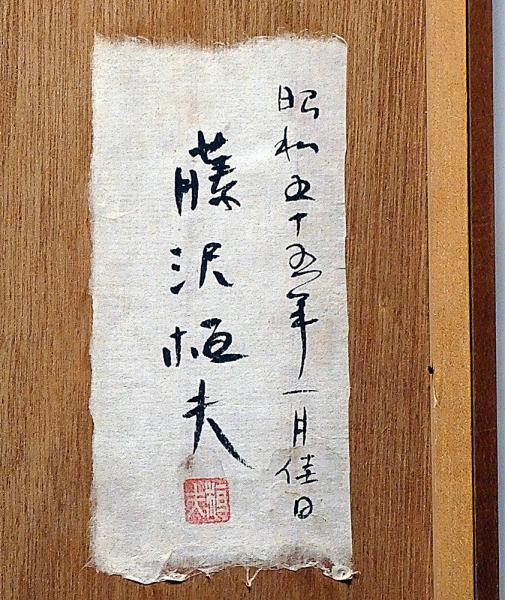 昭和五十五年一月佳日
藤沢桓夫